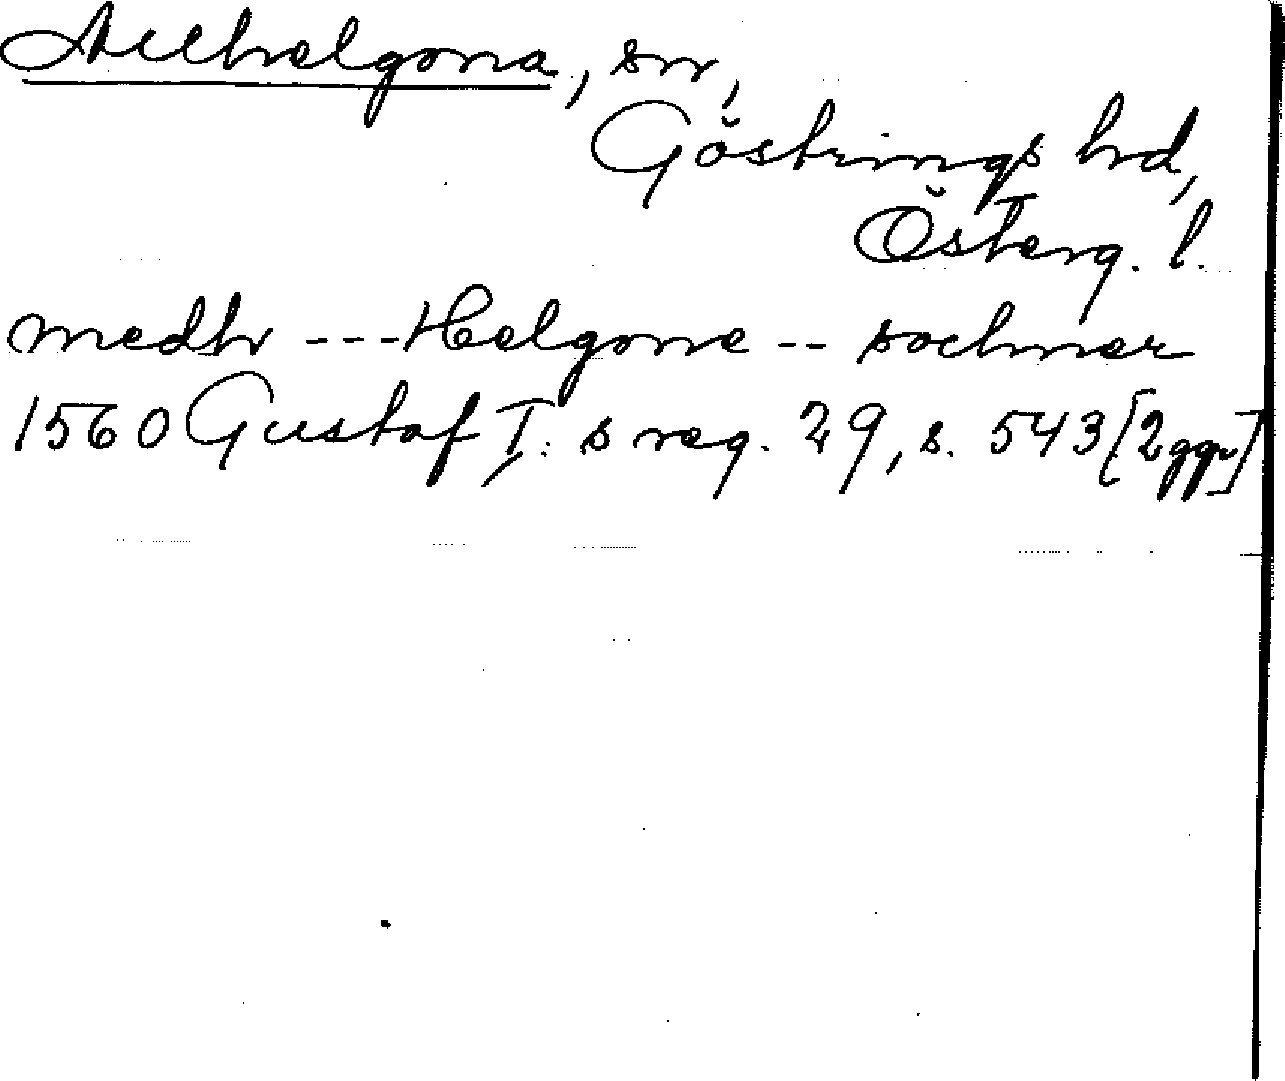 Allhelgona, sn,
Göstrings hd,
Österg. l.
medh --- Helgone -- sochner
1560 Gustaf I:s reg. 29, s. 543 [2ggr]